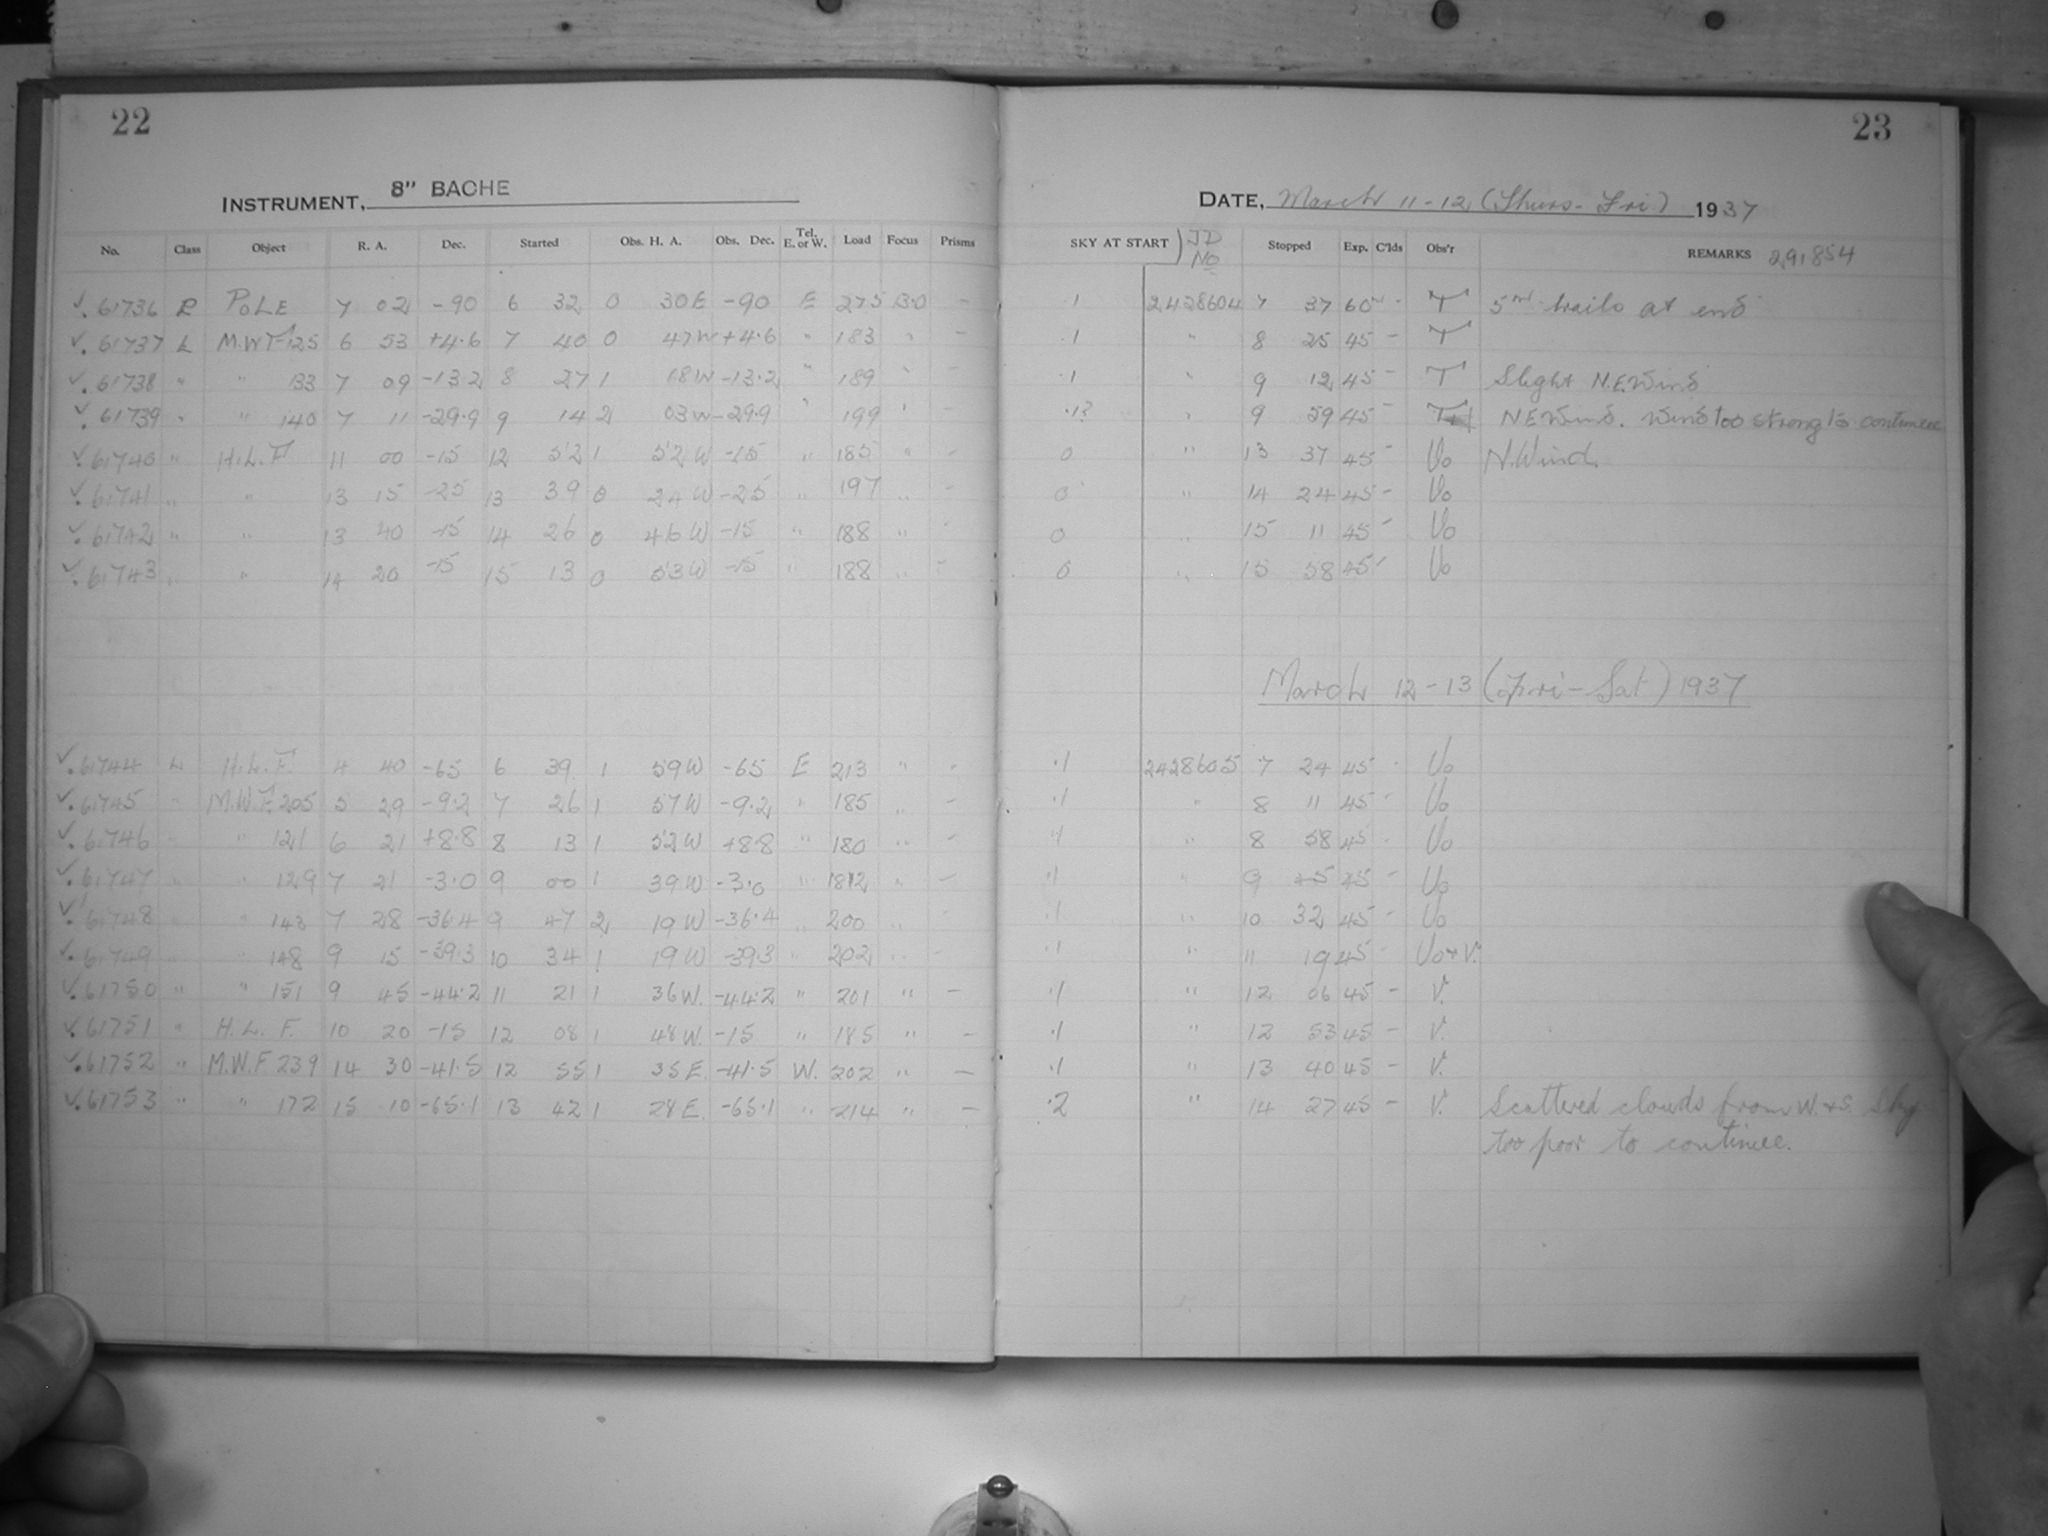 22
23
INSTRUMENT, 8" BACHE
DATE, March 11-12 (Thurs-Fri) 1937
No. Class Object R. A. Dec. Started Obs. H. A. Obs. Dec. Tel. E. or W. Load Focus Prisms SKY AT START JD No Stopped Exp. C'lds Obs'r REMARKS 291854
✓. 61736 P POLE 7 02 -90 6 32 0 30E -90 E 275 13.0 - .1 2428604 7 37 60m - T 5m trails at end
✓. 61737 L M.W.F 125 6 53 +4.6 7 40 0 47W +4.6 " 183 " - .1 " 8 25 45 - T
✓. 61738 " " 133 7 09 -13.2 8 27 1 18W -13.2 " 189 " - .1 " 9 12 45 - T Slight N.E. Wind
✓. 61739 " " 140 7 11 -29.9 9 14 2 03W -29.9 " 199 " - .1? " 9 59 45 - T N E Wind. Wind too strong to continue
✓. 61740 " H.L.F 11 00 -15 12 52 1 52W -15 " 185 " - 0 " 13 37 45 - Uo N. Wind.
✓. 61741 " " 13 15 -25 13 39 0 24W -25 " 197 " - 0 " 14 24 45 - Uo
✓. 61742 " " 13 40 -15 14 26 0 46W -15 " 188 " - 0 " 15 11 45 - Uo
✓. 61743 " " 14 20 -15 15 13 0 53W -15 " 188 " - 0 " 15 58 45 - Uo
March 12-13 (Fri-Sat) 1937
✓. 61744 L H.L.F. 4 40 -65 6 39 1 59W -65 E 213 " - .1 2428605 7 24 45 - Uo
✓. 61745 " M.W.F. 205 5 29 -9.2 7 26 1 57W -9.2 " 185 " - .1 " 8 11 45 - Uo
✓. 61746 " " 121 6 21 +8.8 8 13 1 52W +8.8 " 180 " - .1 " 8 58 45 - Uo
✓. 61747 " " 129 7 21 -3.0 9 00 1 39W -3.0 " " - .1 " 9 45 45 - Uo
✓. 61748 " " 143 7 28 -36.4 9 47 2 19W -36.4 " 200 " - .1 " 10 32 45 - Uo
✓. 61749 " " 148 9 15 -39.3 10 34 1 19W -39.3 " 202 " - .1 " 11 19 45 - Uo+V.
✓. 61750 " " 151 9 45 -44.2 11 21 1 36W. -44.2 " 201 " - .1 " 12 06 45 - V.
✓. 61751 " H. L. F. 10 20 -15 12 08 1 48W. -15 " 185 " - .1 " 12 53 45 - V.
✓. 61752 " M.W.F. 239 14 30 -41.5 12 55 1 35E. -41.5 W. 202 " - .1 " 13 40 45 - V.
✓. 61753 " " 172 15 10 -65.1 13 42 1 28E. -65.1 " 214 " - .2 " 14 27 45 - V. Scattered clouds from W. + S. Sky
too poor to continue.